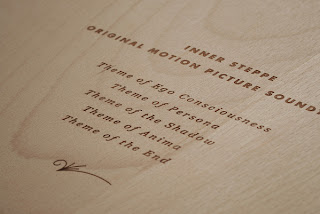 INNER STEPPE
ORIGINAL MOTION PICTURE
Theme of Ego Consciousness
Theme of Persona
Theme of the Shadow
Theme of Anima
Theme of the End